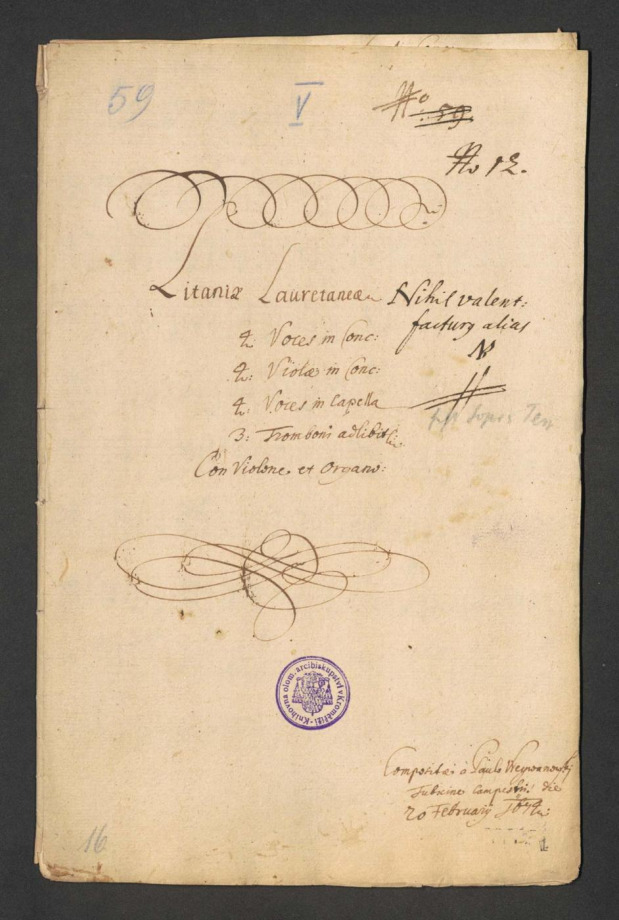 59
V
No 59.
No 12.
Litaniæ Lauretaneæ
Nihil valent:
factury alias
4: Voces in Conc:
4: Violæ in Conc:
4: Voces in Capella
3: Tromboni adlibit
Sopr Ten
Con Violone et Organo:
Knihovna olom. arcibiskupství v Kroměříži
Compositæ à Paulo Weywanowsky
Tubicine campestri die
20 February
16